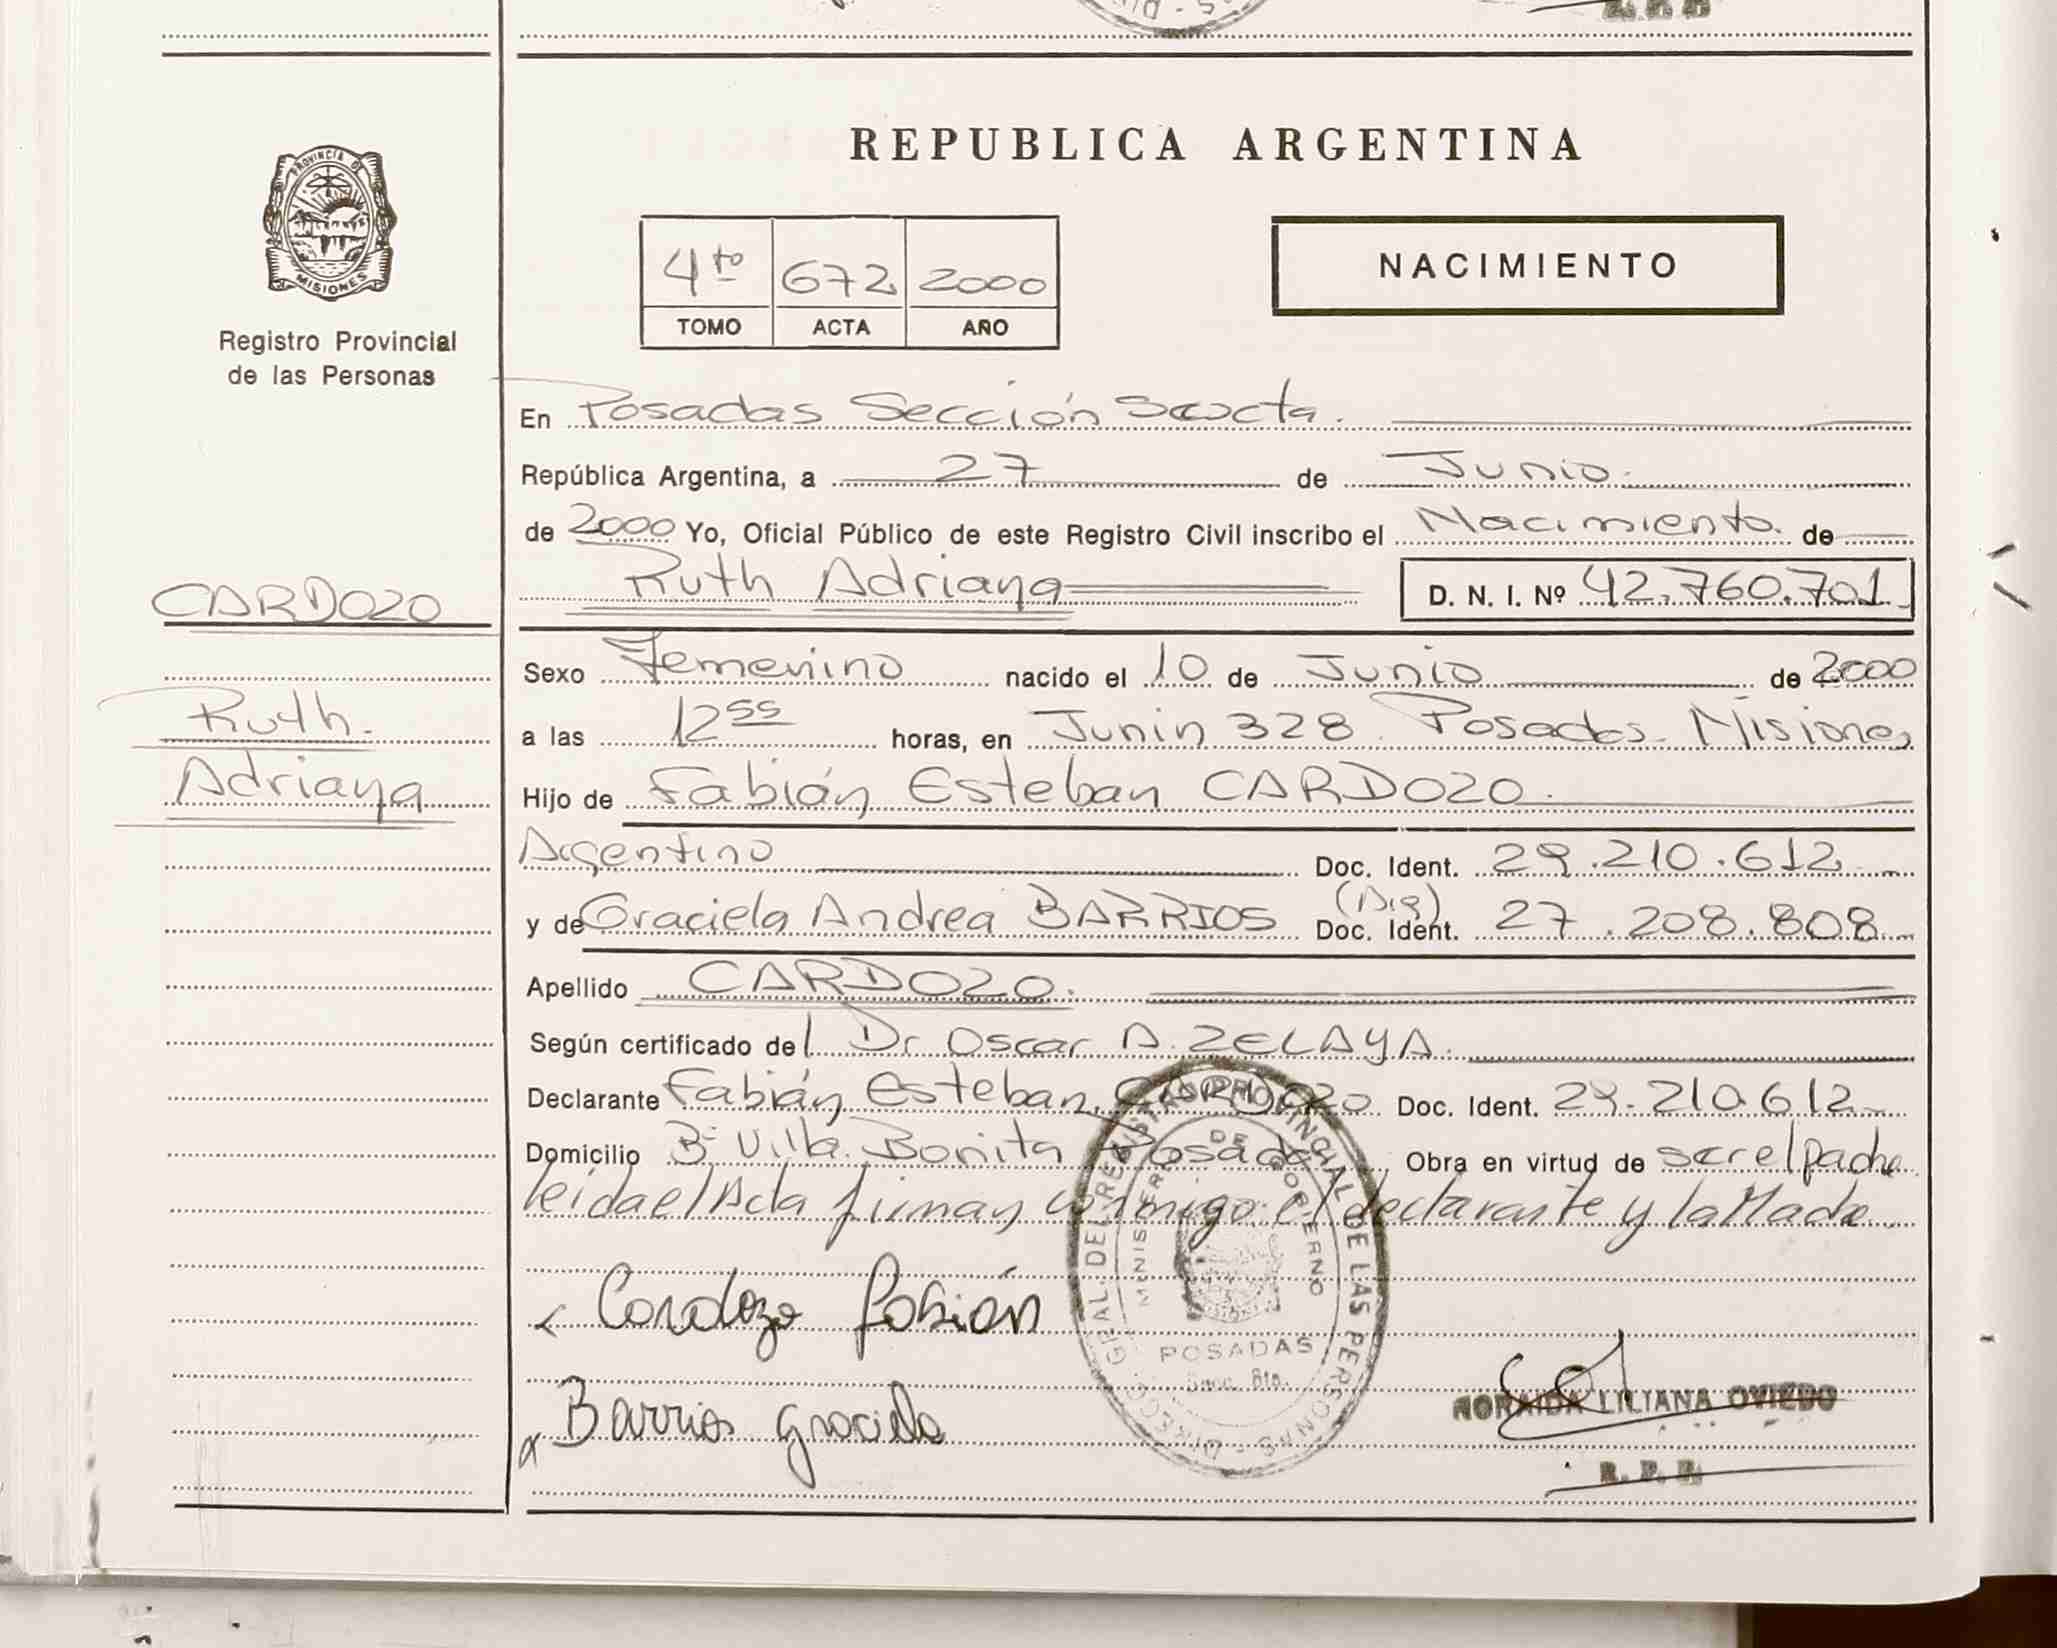 REPUBLICA ARGENTINA
PROVINCIA DE MISIONES
Registro Provincial
de las Personas
4to 672 2000
TOMO ACTA AÑO
NACIMIENTO
En Posadas Sección Sexcta.
República Argentina, a 27 de Junio.
de 2000 Yo, Oficial Público de este Registro Civil inscribo el Nacimiento. de
Ruth Adriana D. N. I. Nº 42.760.701
CARDOZO
Ruth.
Adriana
Sexo Femenino nacido el 10 de Junio de 2000
a las 12 55 horas, en Junin 328. Posadas. Misiones
Hijo de Fabián Esteban CARDOZO.
Argentino Doc. Ident. 29.210.612
y de Graciela Andrea BARRIOS (Arg) Doc. Ident. 27.208.808
Apellido CARDOZO.
Según certificado del Dr Oscar A. ZELAYA.
Declarante Fabián Esteban CARDOZO Doc. Ident. 29.210.612
Domicilio Bº Villa Bonita Posadas Obra en virtud de ser el padre
leida el Acta firman conmigo el declarante y la Madre.
Cardozo Fabián
Barrios Graciela
DIRECC. GRAL. DEL REGISTRO PROVINCIAL DE LAS PERSONAS
MINISTERIO DE GOBIERNO
POSADAS
Secc. 6ta.
LILIANA OVIEDO